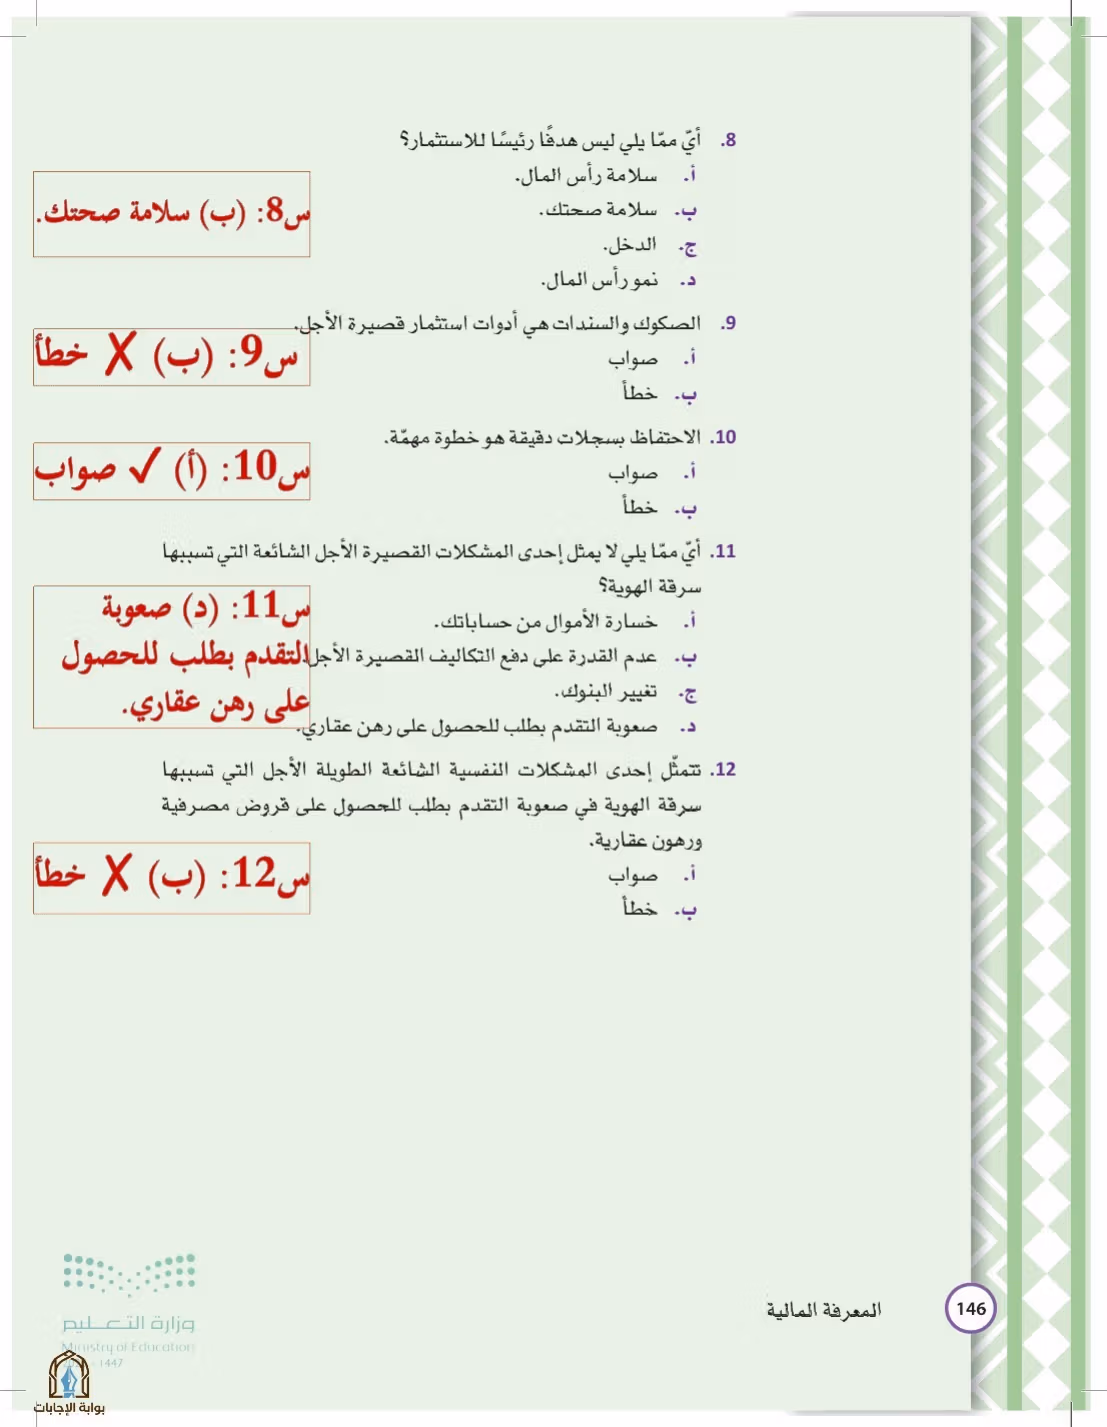 8. أيّ ممّا يلي ليس هدفًا رئيسًا للاستثمار؟
أ. سلامة رأس المال.
ب. سلامة صحتك.
ج. الدخل.
د. نمو رأس المال.
س8: (ب) سلامة صحتك.
9. الصكوك والسندات هي أدوات استثمار قصيرة الأجل.
أ. صواب
ب. خطأ
س9: (ب) ✗ خطأ
10. الاحتفاظ بسجلات دقيقة هو خطوة مهمّة.
أ. صواب
ب. خطأ
س10: (أ) ✓ صواب
11. أيّ ممّا يلي لا يمثل إحدى المشكلات القصيرة الأجل الشائعة التي تسببها
سرقة الهوية؟
أ. خسارة الأموال من حساباتك.
ب. عدم القدرة على دفع التكاليف القصيرة الأجل.
ج. تغيير البنوك.
د. صعوبة التقدم بطلب للحصول على رهن عقاري.
س11: (د) صعوبة
التقدم بطلب للحصول
على رهن عقاري.
12. تتمثّل إحدى المشكلات النفسية الشائعة الطويلة الأجل التي تسببها
سرقة الهوية في صعوبة التقدم بطلب للحصول على قروض مصرفية
ورهون عقارية.
أ. صواب
ب. خطأ
س12: (ب) ✗ خطأ
المعرفة المالية
146
وزارة التعليم
Ministry of Education
1447
بوابة الإجابات